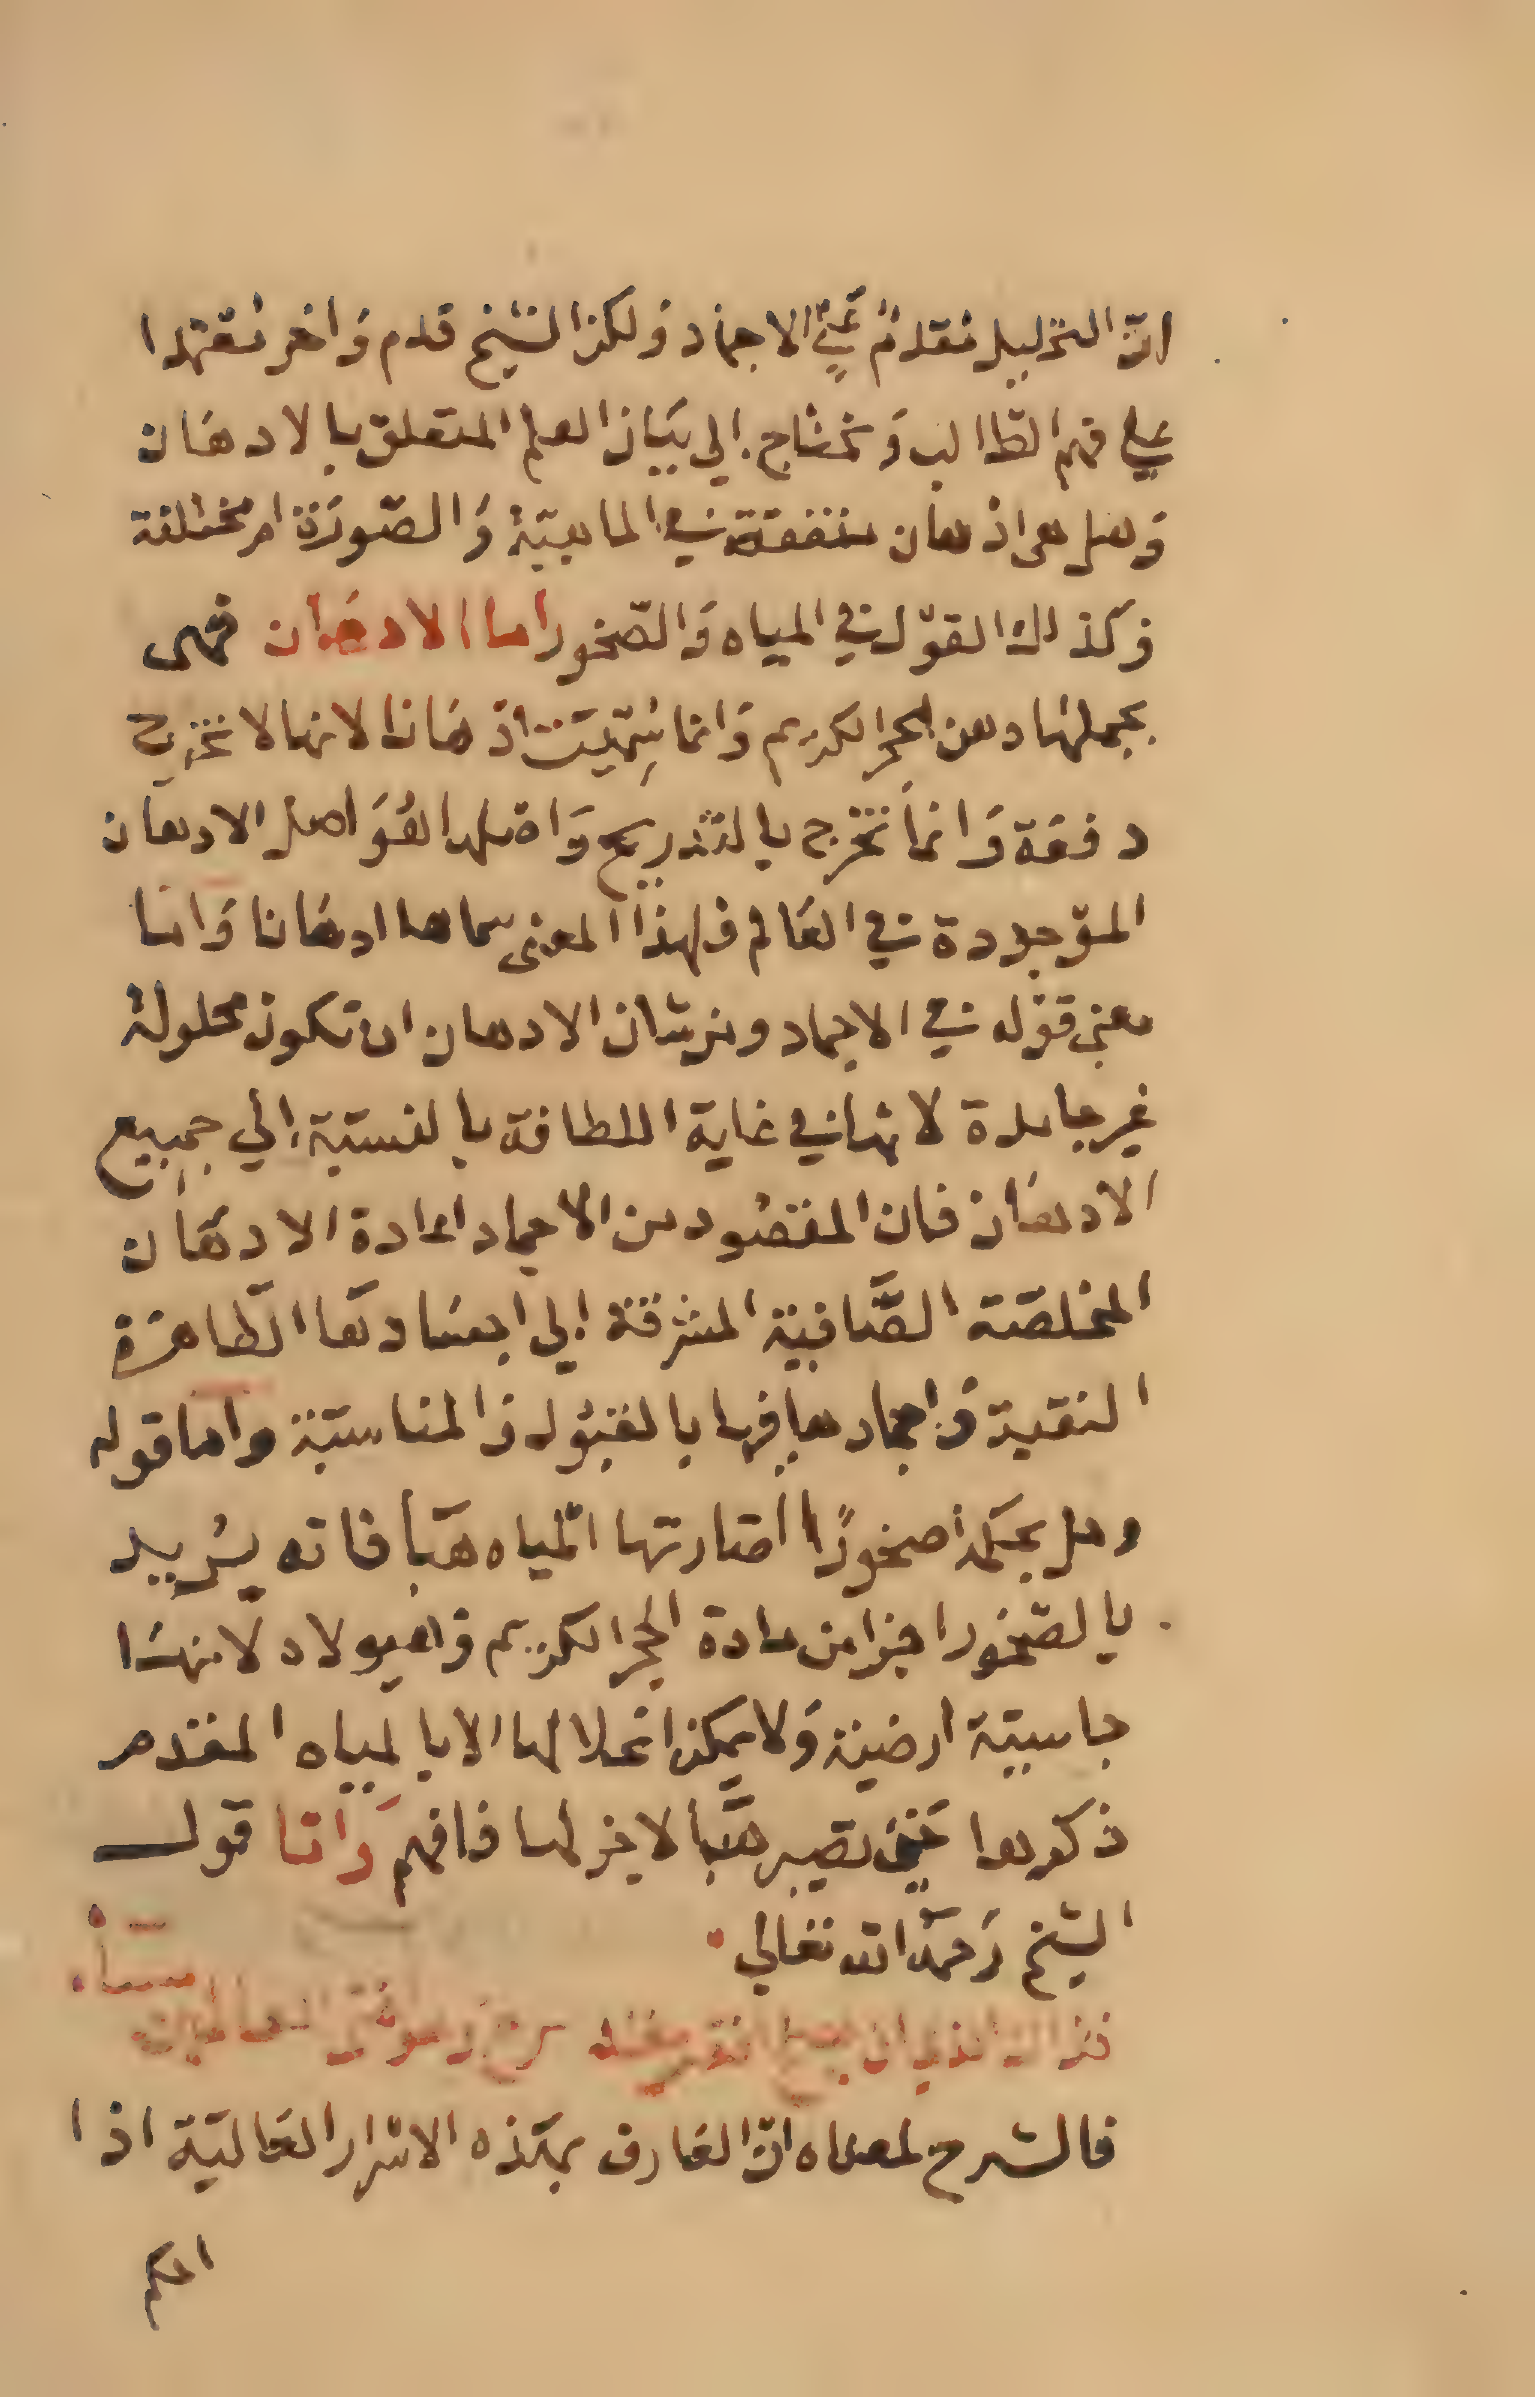 انّ التحليل مُقدّمٌ عَلَى الاجماد ولكن الشيخ قدم وَاخر مُعتمدا
علي فهم الطالب وَنحتاج الي بيَان العلم المتعلق بالادهَان
وَهل هى ادهان متفقة في الماهيّة وَالصّورَة ام مختلفة
وَكذلك القوْل في المياه وَالصّخور اما الادهَان فهى
بجملتها دهن الحجر الكريم وَانما سُمّيَت ادهَانا لانها لا تخرج
دفعَة وَانما تخرج بالتدريج وَاصلها هُوَ اصل الادهان
الموْجودة في العَالم فلهذا المعنى سماها ادهَانا وَامّا
معنى قوْله في الاجماد ومن شان الادهان ان تكون محلولة
غير جامدة لانها في غاية اللطافة بالنسبَة الي جميع
الادهَان فان المقصُود من الاجماد اعادة الادهَان
المخلصَة الصَّافية المشرقة الي اجسَادهَا الطاهرَة
النقية وَاجمادها فيها بالقبُول وَالمناسبَة واما قوله
وهل يحكمن صخورًا اصَارتها المياه هَبا فانه يرُيد
بالصّخور اجزا من مادة الحجر الكريم وَهيولاه لانهَا
جاسيَة ارضيَة وَلا يمكن انحلالها الا بالمياه المقدم
ذكرها حَتى تصير هَبَا لاجزء لها فافهم وَامّا قول
الشيخ رَحمهُ الله تعالي
فذاك الذي ان
فالشرح لمعناه انّ العَارف بهَذه الاسْرار العَاليَة اذا
احكم